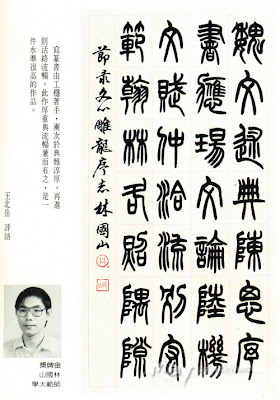 魏文述典陳思序
書應瑒文論陸機
文賦仲洽流別宏
範翰林各照隅隙
節录文心雕龍序志 林國山
寫篆書由工穩著手，漸次於典雅淳厚，再進
則活絡流暢。此作厚重與流暢兼而有之，是一
件水準很高的作品。
王北岳 評語
金牌獎
林國山
師範大學